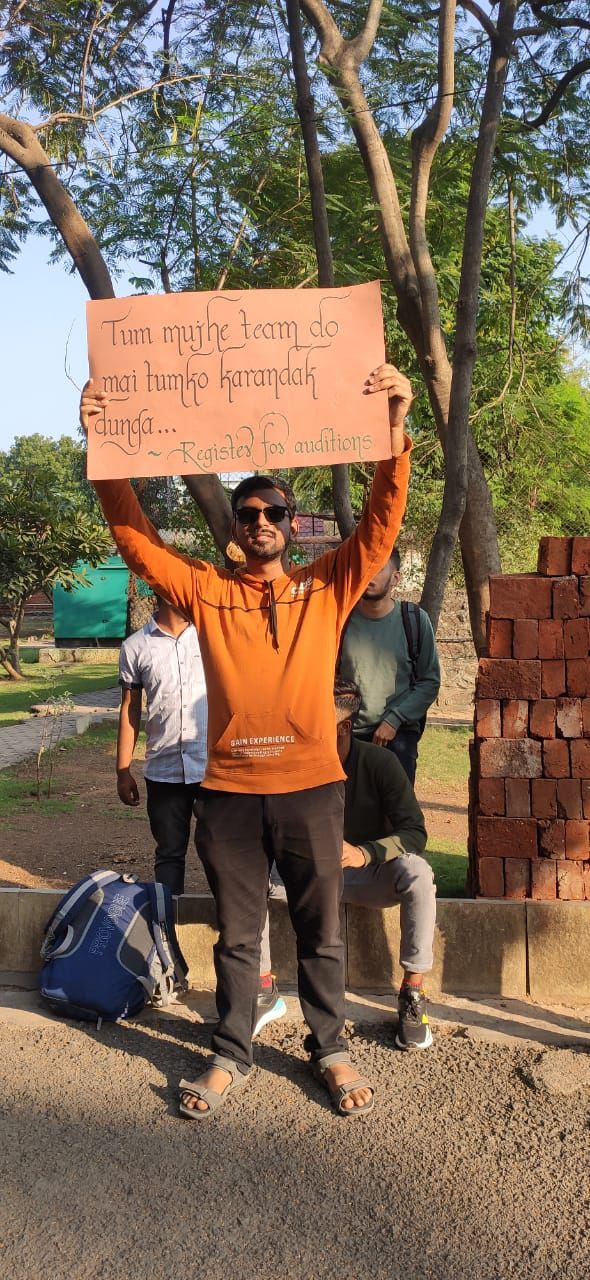 Tum mujhe team do
mai tumko karandak
dunga...
~ Register for auditions
GAIN EXPERIENCE
PROVOGUE